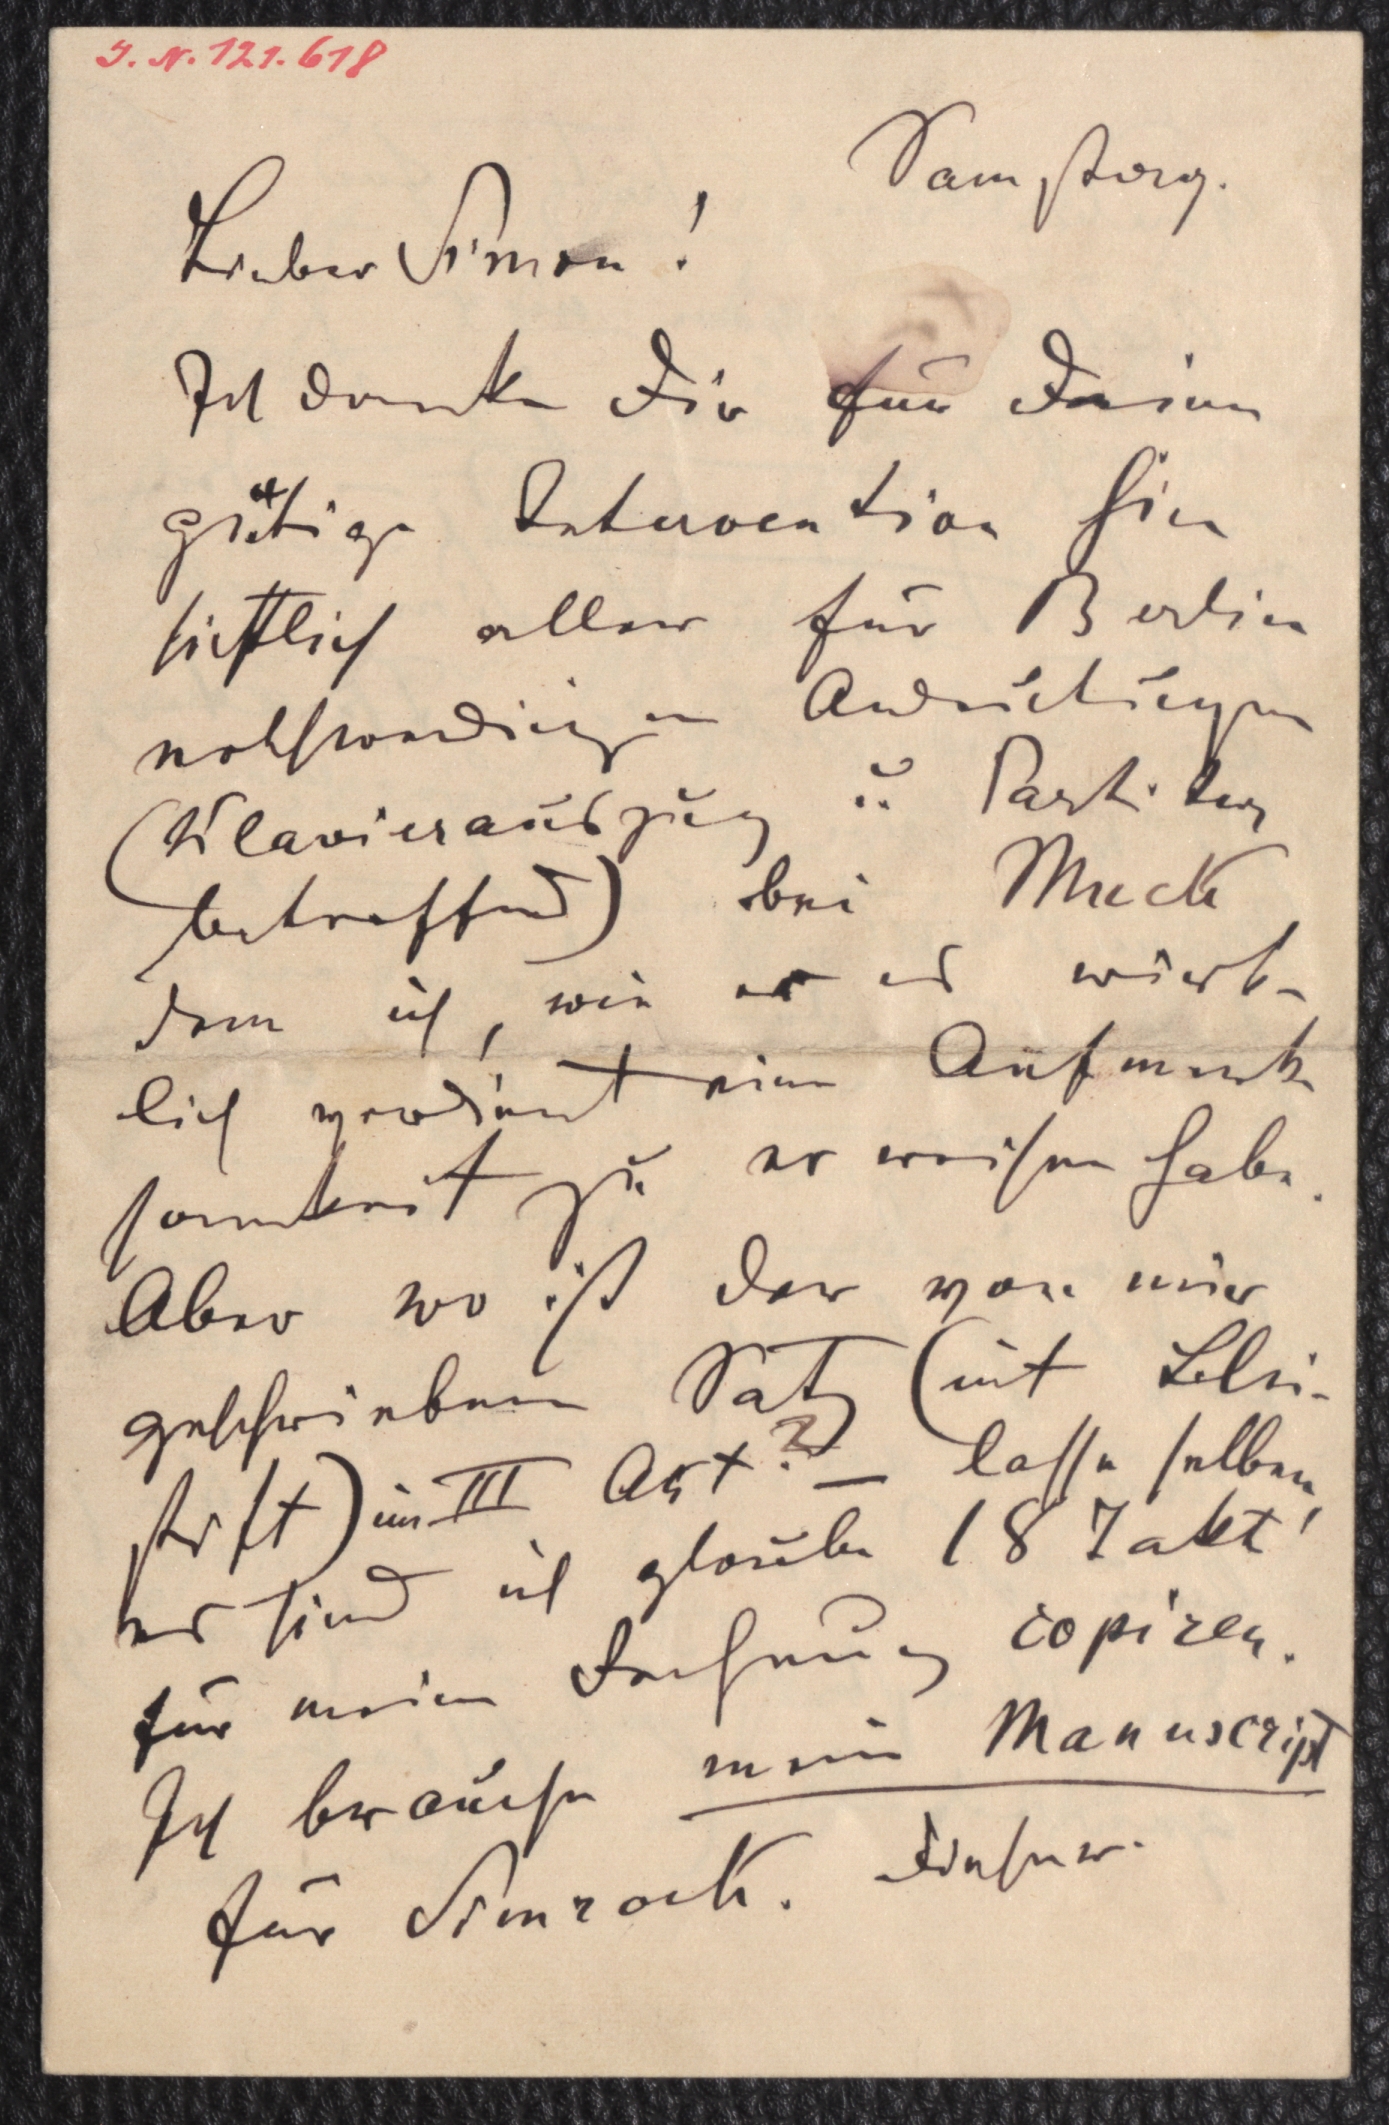 I. N. 121.618
Samstag.
Lieber Simon!
Ich danke Dir für Deine
gütige Intervention hin
sichtlich aller für Berlin
nothwendigen Andeutungen
(Klavierauszug u Partitur
betreffend) bei Muck
dem ich, wie er es wirk-
lich verdient eine Aufmerk
samkeit zu erweisen habe.
Aber wo ist der von mir
geschriebene Satz (mit Blei-
stift) im III Akt? – lasse selben,
es sind ich glaube 18 Takt'
für meine Rechnung copiren.
Ich brauche mein Manuscript
für Simrock. Dieser